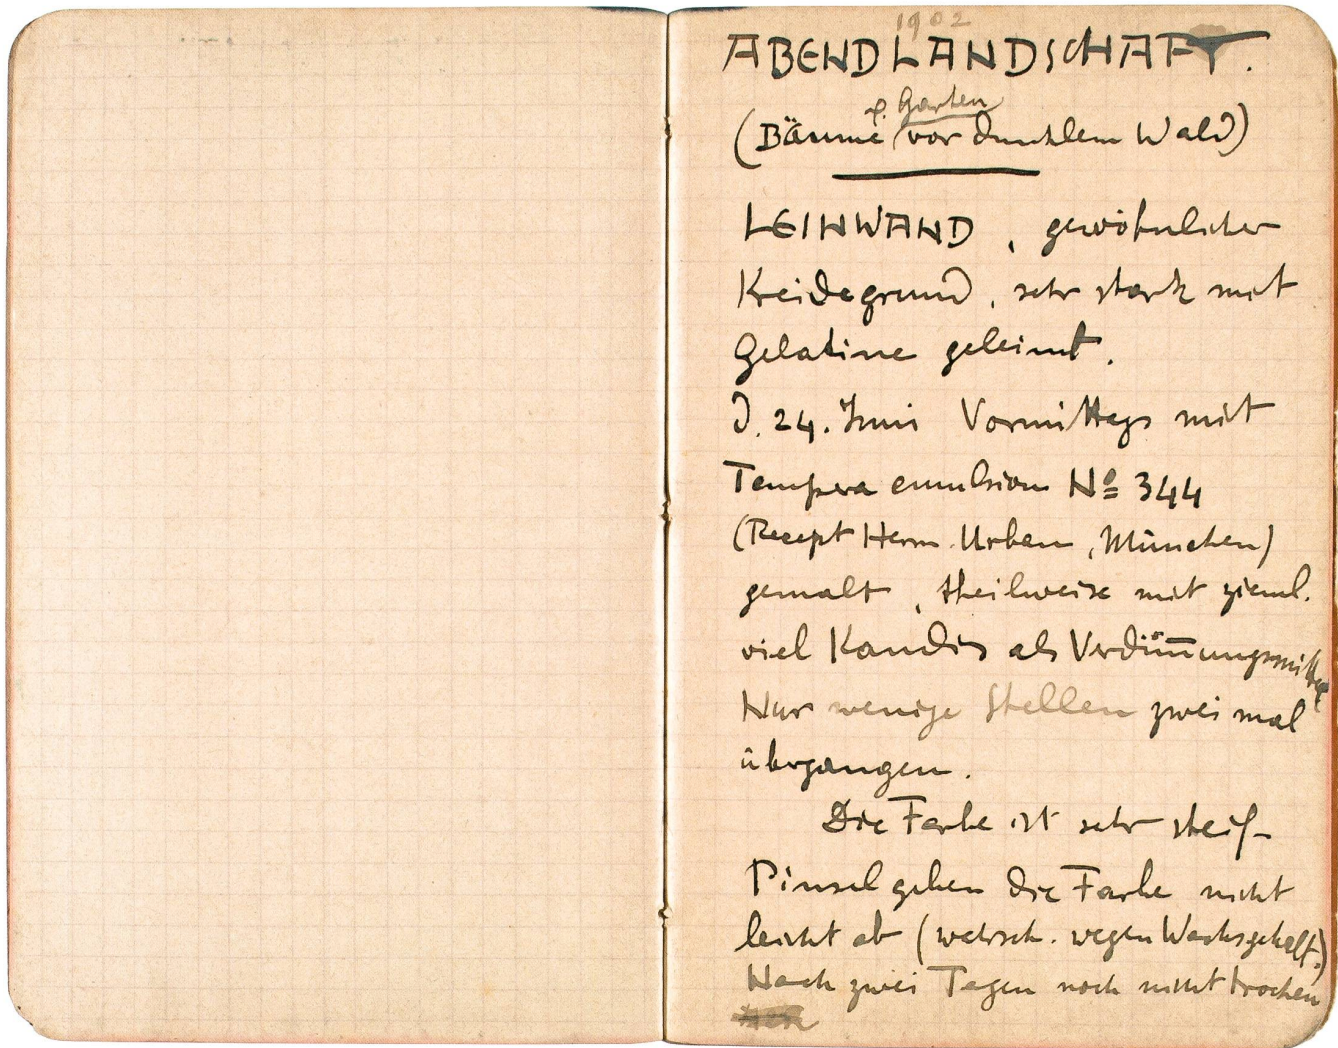 1902
ABENDLANDSCHAFT.
u. Garten
(Bäume vor dunklem Wald)
LEINWAND, gewöhnlicher
Kreidegrund, sehr stark mit
Gelatine geleimt.
D. 24. Juni Vormittags mit
Tempera emulsion No 344
(Recept Herm. Urban, München)
gemalt, theilweise mit zieml.
viel Kandis als Verdün̅ungsmittel
Nur wenige Stellen zwei mal
übergangen.
Die Farbe ist sehr steif
Pinsel geben die Farbe nicht
leicht ab (wahrsch. wegen Wachsgehalt.)
Nach zwei Tagen noch nicht trocken